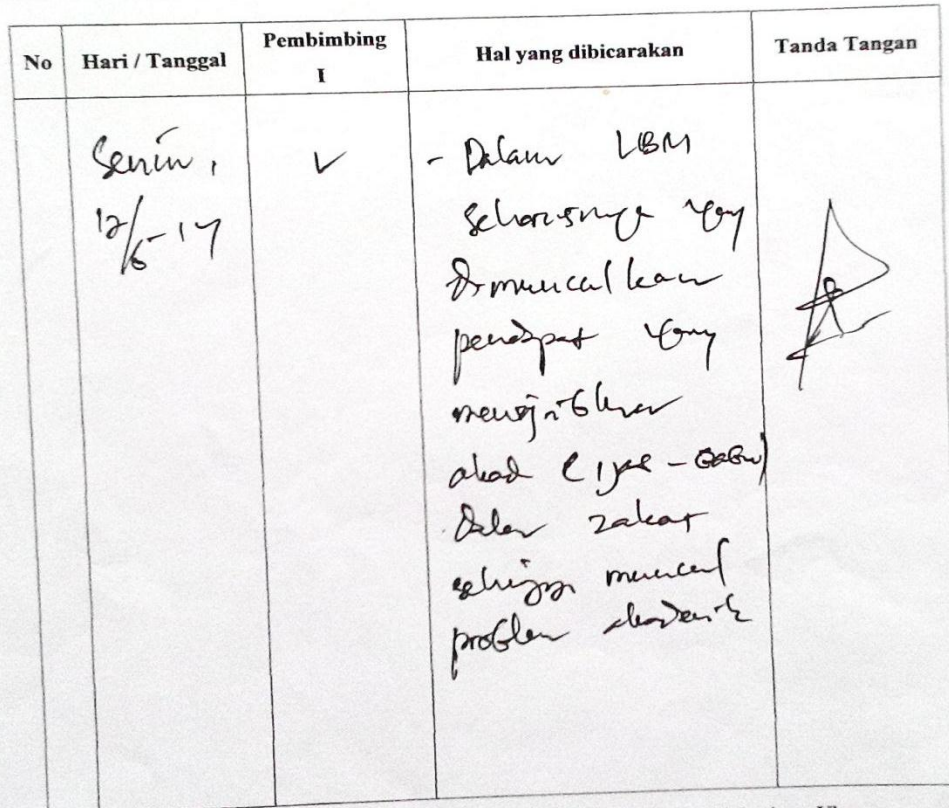 No Hari / Tanggal Pembimbing I Hal yang dibicarakan Tanda Tangan
Senin, 12/6-17 V - Dalam LBM
seharusnya yang
dimunculkan
pendapat yang
mewajibkan
akad (ijab - qabul)
dalam zakat
sehingga muncul
problem akademik